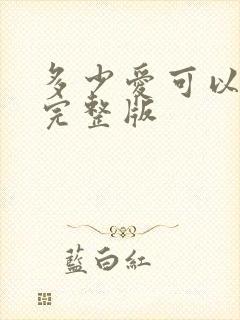 多少愛可以
完整版
藍白紅